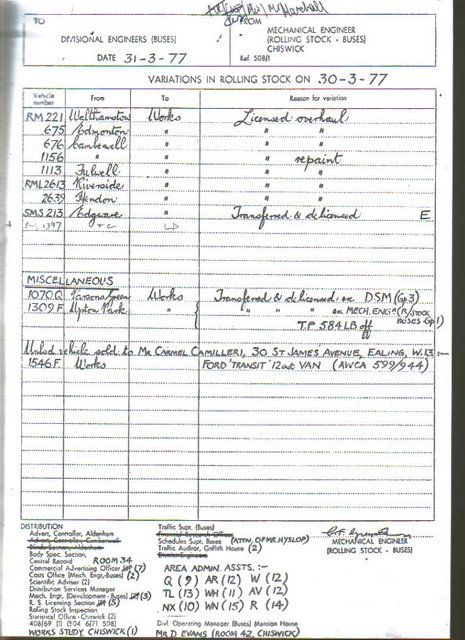 TO
(Mr) M. Marshall
FROM
DIVISIONAL ENGINEERS (BUSES)
MECHANICAL ENGINEER
(ROLLING STOCK - BUSES)
CHISWICK
DATE 31-3-77
Ref. 508/1
VARIATIONS IN ROLLING STOCK ON 30-3-77
Vehicle number From To Reason for variation
RM 221 Walthamstow Works Licensed overhaul
675 Edmonton " " "
676 Camberwell " " "
1156 " " " repaint
1113 Fulwell " " "
RML2613 Riverside " " "
2639 Hendon " " "
SMS 213 Edgware " Transferred & delicensed E
1397
MISCELLANEOUS
1070Q Parsons Green Works Transferred & delicensed ex DSM (Gp 3)
1309F Upton Park " { " " " ex MECH. ENGR (R/STOCK BUSES Gp1)
T.P. 584 LB off
Unlsd vehicle sold to MR CARMEL CAMILLERI, 30 ST JAMES AVENUE, EALING, W.13:-
1546F Works FORD 'TRANSIT' 12cwt VAN (AWCA 599/944)
DISTRIBUTION
Advert. Controller, Aldenham
Advert. Controller, Camberwell
Blinds Section, Aldenham
Body Spec. Section,
Central Record ROOM 34
Commercial Advertising Officer (7)
Costs Office (Mech. Engr, Buses) (2)
Scientific Adviser (2)
Distribution Services Manager
Mech. Engr. (Development - Buses) (3)
R. S. Licensing Section (5)
Rolling Stock Inspection
Statistical Office - Chiswick (2)
408/69 (1) 504 667/1 508)
WORKS STUDY CHISWICK (1)
Traffic Supt. (Buses)
Financial Research Officer
Schedules Supt. Buses (ATTN. OF MR. HYSLOP)
Traffic Auditor, Griffith House (2)
Division Engineers
AREA ADMIN. ASSTS. :-
Q (9) AR (12) W (12)
TL (13) WH (11) AV (12)
NX (10) WN (15) R (14)
Divl. Operating Manager (Buses) Mansion House
MR D EVANS (ROOM 42, CHISWICK)
MECHANICAL ENGINEER
(ROLLING STOCK - BUSES)